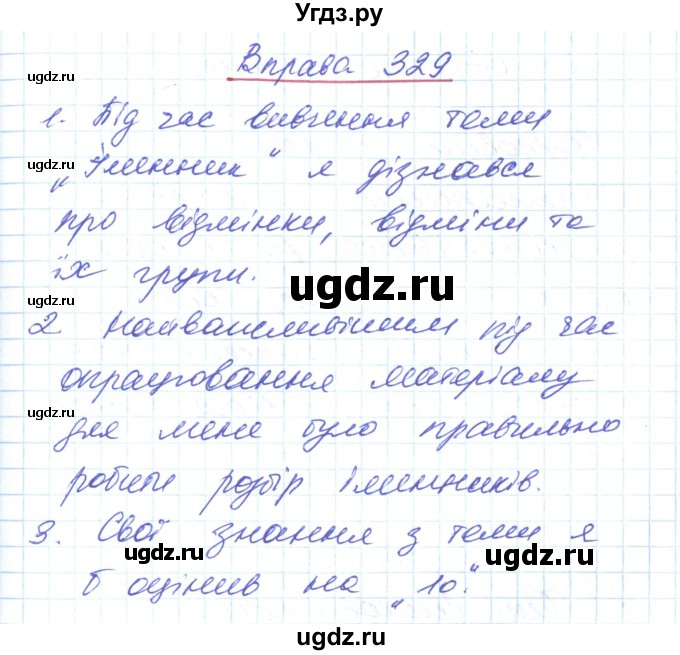 Угдз.ру
Вправа 329
ugdz.ru
1. Під час вивчення теми
ugdz.ru
„Іменник“ я дізнався
про відмінки, відміни та
їх групи.
ugdz.ru
ugdz.ru
2 Найважливішим під час
опрацювання матеріалу
ugdz.ru
для мене було правильно
робити розбір іменників.
3. Свої знання з теми я
ugdz.ru
ugdz.ru
б оцінив на „10“.
ugdz.ru